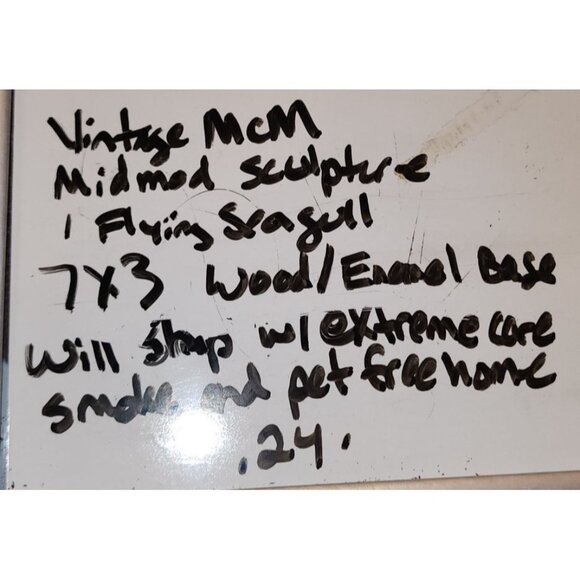 Vintage McM
Midmod Sculpture
1 Flying Seagull
7x3 Wood/Enamel Base
Will Ship w/ extreme care
smoke and pet free home
.24.